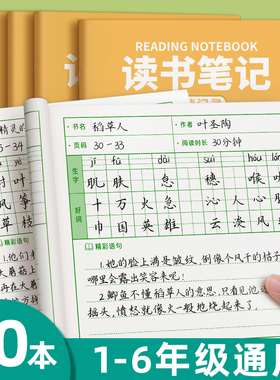 READING NOTEBOOK
读书笔记
书名 稻草人
作者 叶圣陶
页码 30-33
阅读时长 30分钟
生字
jī fū dài suì hóu lóng
肌 肤 怠 穗 喉 咙
好词
十 万 火 急 沁 人 心
巾 帼 英 雄 云 淡 风
精彩语句
1.她的脸上满是皱纹,倒像个风干的桔子
哪里会露出笑容来呢?
2.鲫鱼不懂稻草人的意思,只看见他连
摇头,愤怒就像火一般地烧起来了。
0本
1-6年级通